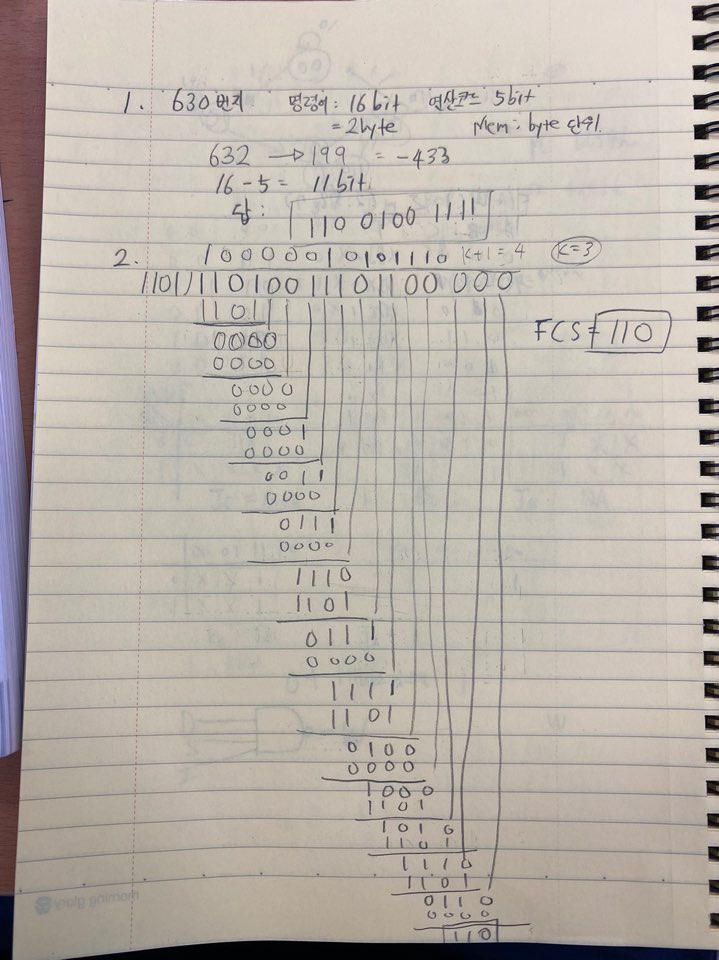 1. 630번지 명령어: 16bit 연산코드 5bit
= 2byte Mem: byte 단위
632 → 199 = -433
16 - 5 = 11bit
답: 110 0100 1111
2. 10000010101110 k+1=4 k=3
1101)11010011101100000
1101
FCS = 110
0000
0000
0000
0000
0001
0000
0011
0000
0111
0000
1110
1101
0111
0000
1111
1101
0100
0000
1000
1101
1010
1101
1110
1101
0110
0000
110
morning glory